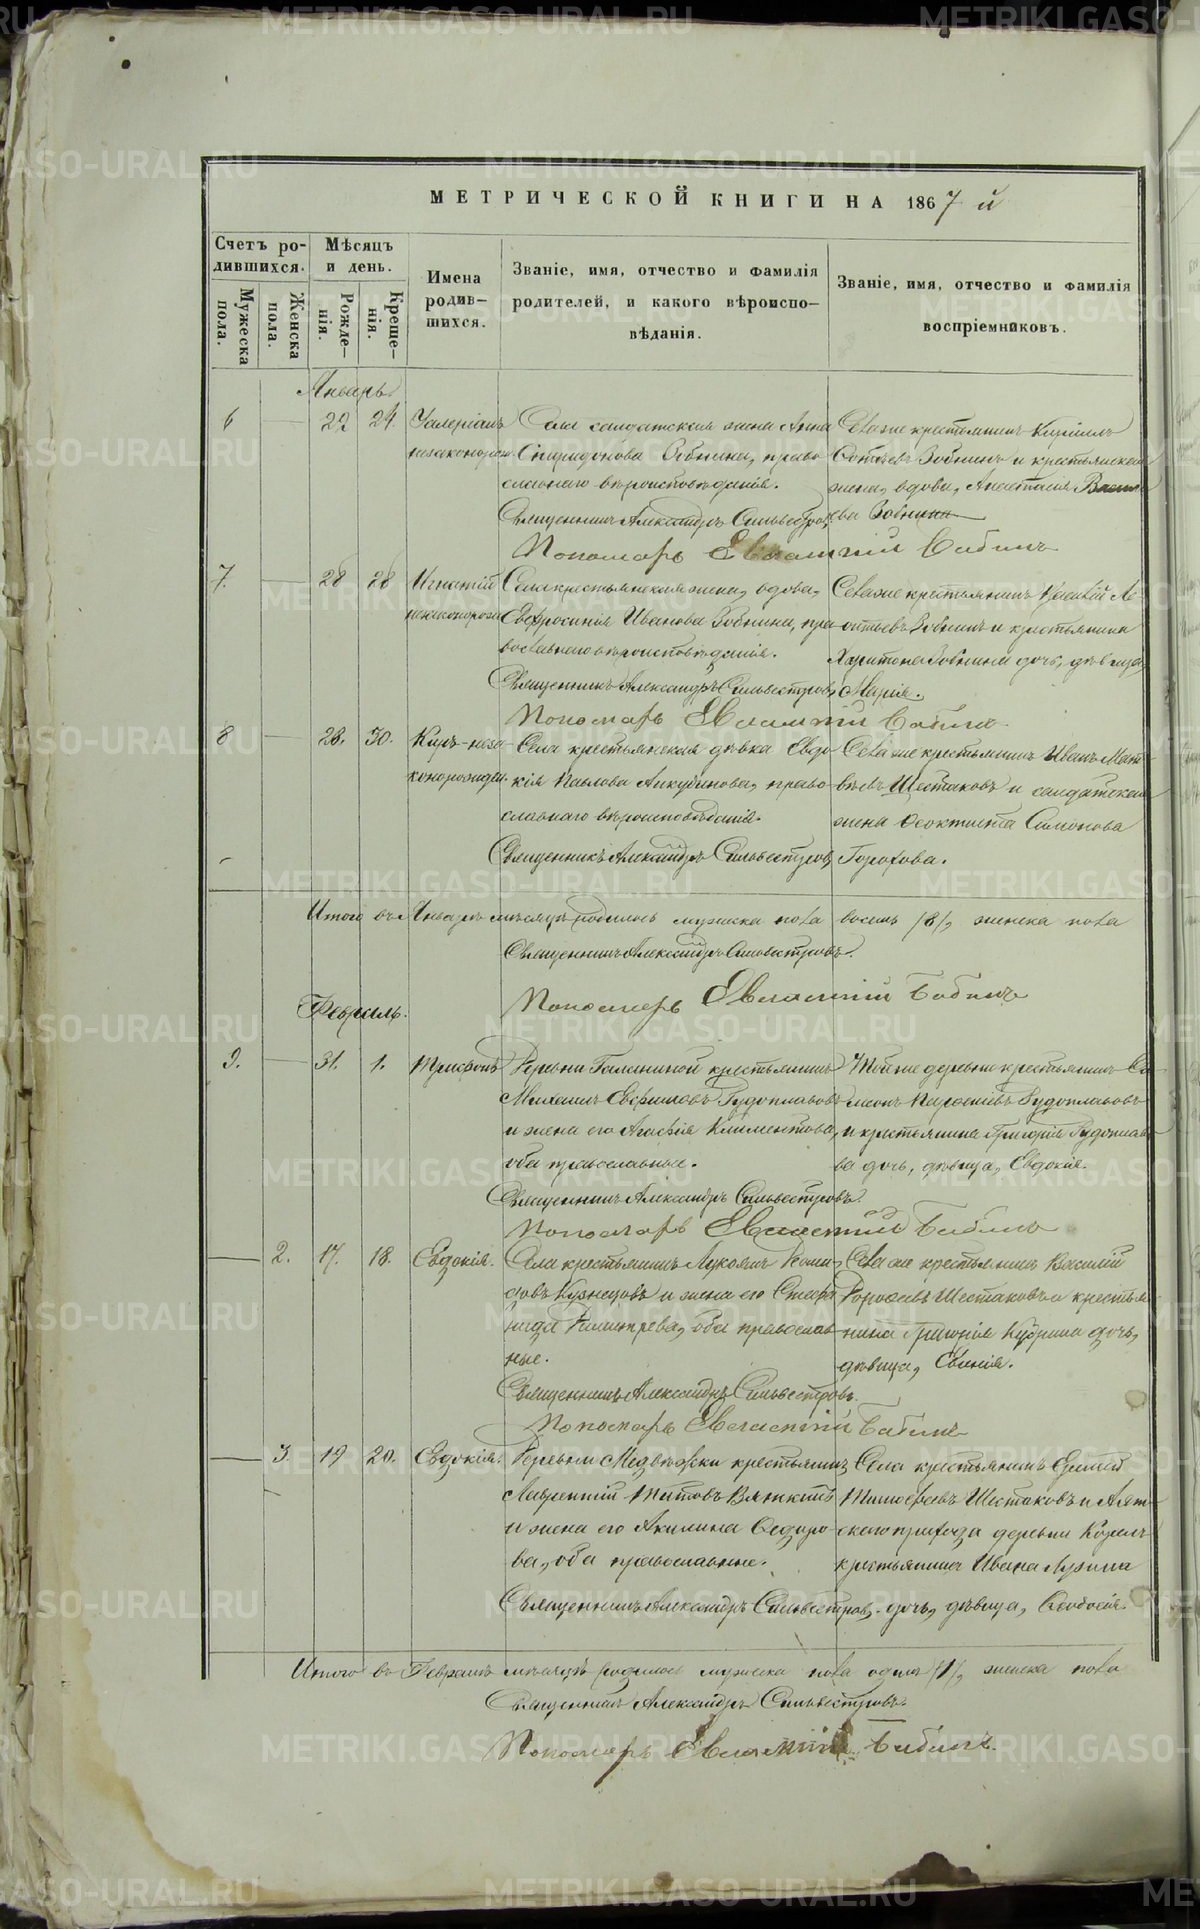 МЕТРИЧЕСКОЙ КНИГИ НА 1867 й
Счетъ ро-
дившихся.
Мужеска пола.
Женска пола.
Мѣсяцъ
и день.
Рожде-
нія.
Креще-
нія.
Имена
родив-
шихся.
Званіе, имя, отчество и фамилія
родителей, и какого вѣроиспо-
вѣданія.
Званіе, имя, отчество и фамилія
воспріемниковъ.
Январь
6 22 24. Валеріанъ
незаконорож
Села солдатская жена Анна
Спиридонова Зобнина, право
славнаго вѣроисповѣданія.
Священникъ Александръ Сильвестровъ
Села же крестьянинъ Кириллъ
Зобнинъ и крестьянская
жена, вдова, Анастасія
ева Зобнина
Пономарь Евлампій Бабинъ
7. 28 28 Игнатій
незаконорож
Села крестьянская жена, вдова,
Евфросинія Иванова Зобнина, пра
вославнаго вѣроисповѣданія.
Священникъ Александръ Сильвестровъ
Села же крестьянинъ Ле
онтьевъ Зобнинъ и крестьянина
Харитона Зобнина дочь, дѣвица,
Марія.
Пономарь Евлампій Бабинъ
8 28. 30. Киръ-неза
конорожден.
Села крестьянская дѣвка Евдо
кія Павлова Анкудинова, право
славнаго вѣроисповѣданія.
Священникъ Александръ Сильвестровъ
Села же крестьянинъ Иванъ Мат
вѣевъ Шестаковъ и солдатская
жена Феоктиста Симонова
Горохова.
Итого въ Январѣ мѣсяцѣ родилось мужеска пола восемь /8/, женска пола
Священникъ Александръ Сильвестровъ.
Пономарь Евлампій Бабинъ
Февраль.
9. 31. 1. Трифонъ
Деревни Галаниной крестьянинъ
Михаилъ Евфимовъ Рудоплавовъ
и жена его Агафія Климентова,
оба православные.
Священникъ Александръ Сильвестровъ.
Той же деревни крестьянинъ Си
меонъ Рудоплавовъ
и крестьянина Григорія Рудоплаво
ва дочь, дѣвица, Евдокія.
Пономарь Евлампій Бабинъ
2. 17. 18. Евдокія.
Села крестьянинъ Лукоянъ
довъ Кузнецовъ и жена его Стефа
нида Димитрева, оба православ
ные.
Священникъ Александръ Сильвестровъ.
Села же крестьянинъ Василій
Дорофеевъ Шестаковъ и крестья
нина Григорія дочь,
дѣвица,
Пономарь Евлампій Бабинъ
3. 19 20. Евдокія.
Деревни Медвѣжки крестьянинъ
Лаврентій Титовъ Вяткинъ
и жена его Акилина Федоро
ва, оба православные.
Священникъ Александръ Сильвестровъ.
Села крестьянинъ
Тимофеевъ Шестаковъ и Аят
скаго прихода деревни
крестьянина Ивана
дочь, дѣвица,
Итого въ Февралѣ мѣсяцѣ родилось мужеска пола одинъ /1/, женска пола
Священникъ Александръ Сильвестровъ.
Пономарь Евлампій Бабинъ.
METRIKI.GASO-URAL.RU